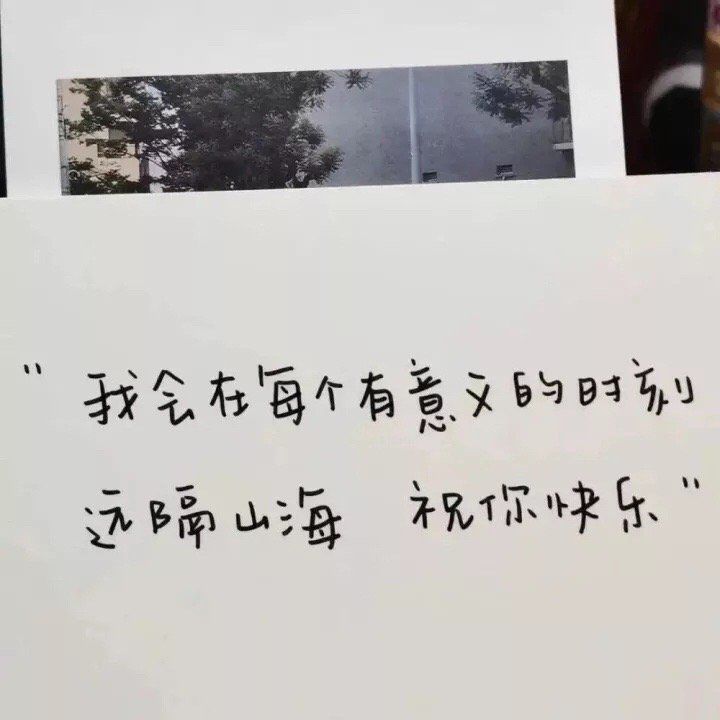 "我会在每个有意义的时刻
远隔山海 祝你快乐"